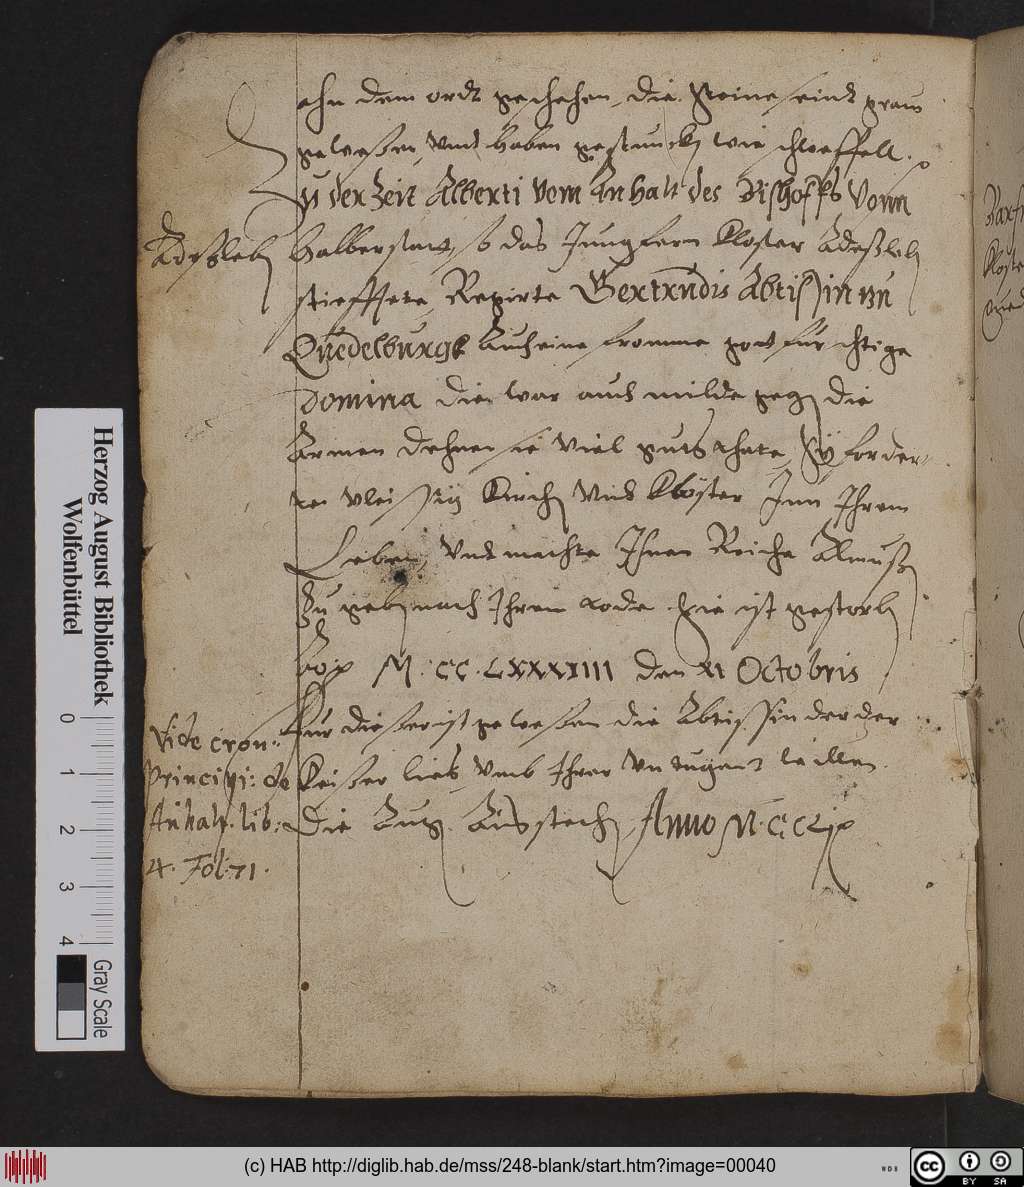 ahn dem ordt geschehen, die steine seindt graw
geweßen, vnd haben gestuncken wie schweffell.
Zu der Zeit Alberti vom Anhalt des Bischoffs Vonn
Adeßleben
Halberstatt, so das Jungfern Kloster Adeßleben
stiefftete, Regirte Gertrudis Abtissin zu
Quedelburgk Auch eine fromme gottfürchtige
Domina die war auch milde gegen die
Armen dehnen sie viel guts thate, Sy forder-
te vleissig Kirchen vnd Klöster Inn Ihrem
Leben, vnd machte Ihnen Reiche Almußen
Zu geben nach Ihrem tode. Sie ist gestorben
M. CC. LXXXIIII den XI Octobris
Für dießer ist geweßen die Abtissin der der
Keißer lies vmb Ihrer vntugent willen
die Augen Ausstechen, Anno M. CC
Vide cron:
Principi: de
Anhalt. lib:
4. Fol: 71.
Herzog August Bibliothek
Wolfenbüttel
0 1 2 3 4
Gray Scale
(c) HAB http://diglib.hab.de/mss/248-blank/start.htm?image=00040
WDB
cc BY SA